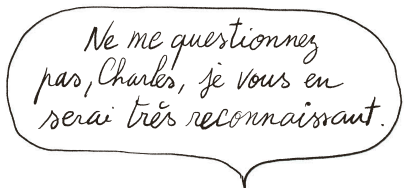 Ne me questionnez
pas, Charles, je vous en
serai très reconnaissant.